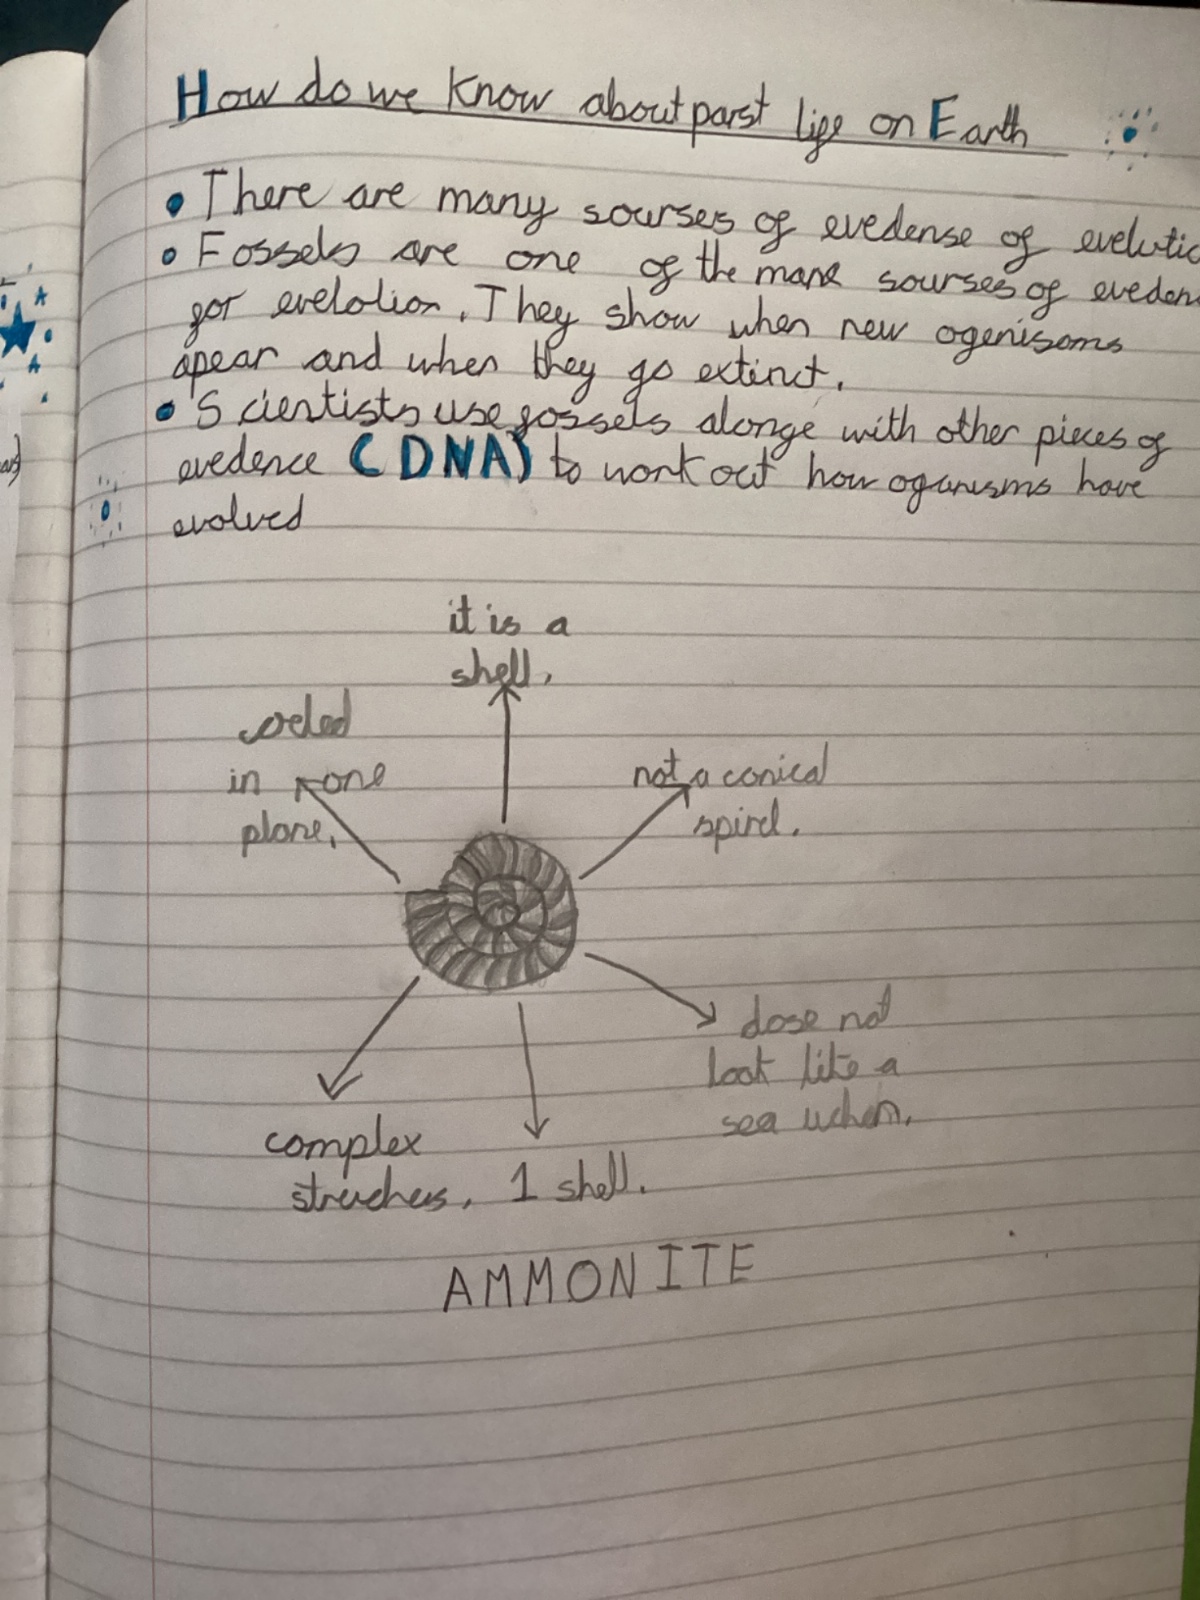 How do we know about parst life on Earth
• There are many sourses of evedense of evelutio
• Fossels are one of the mane sourses of eveden
for evelotion. They show when new ogenisoms
apear and when they go extinct.
• Scientists use fossels alonge with other pieces of
evedence (DNA) to work out how oganisms have
evolved
it is a
shell.
coeled
in one
plane.
not a conical
spirel.
dose not
look like a
sea uchen.
complex
struchers.
1 shell.
AMMONITE